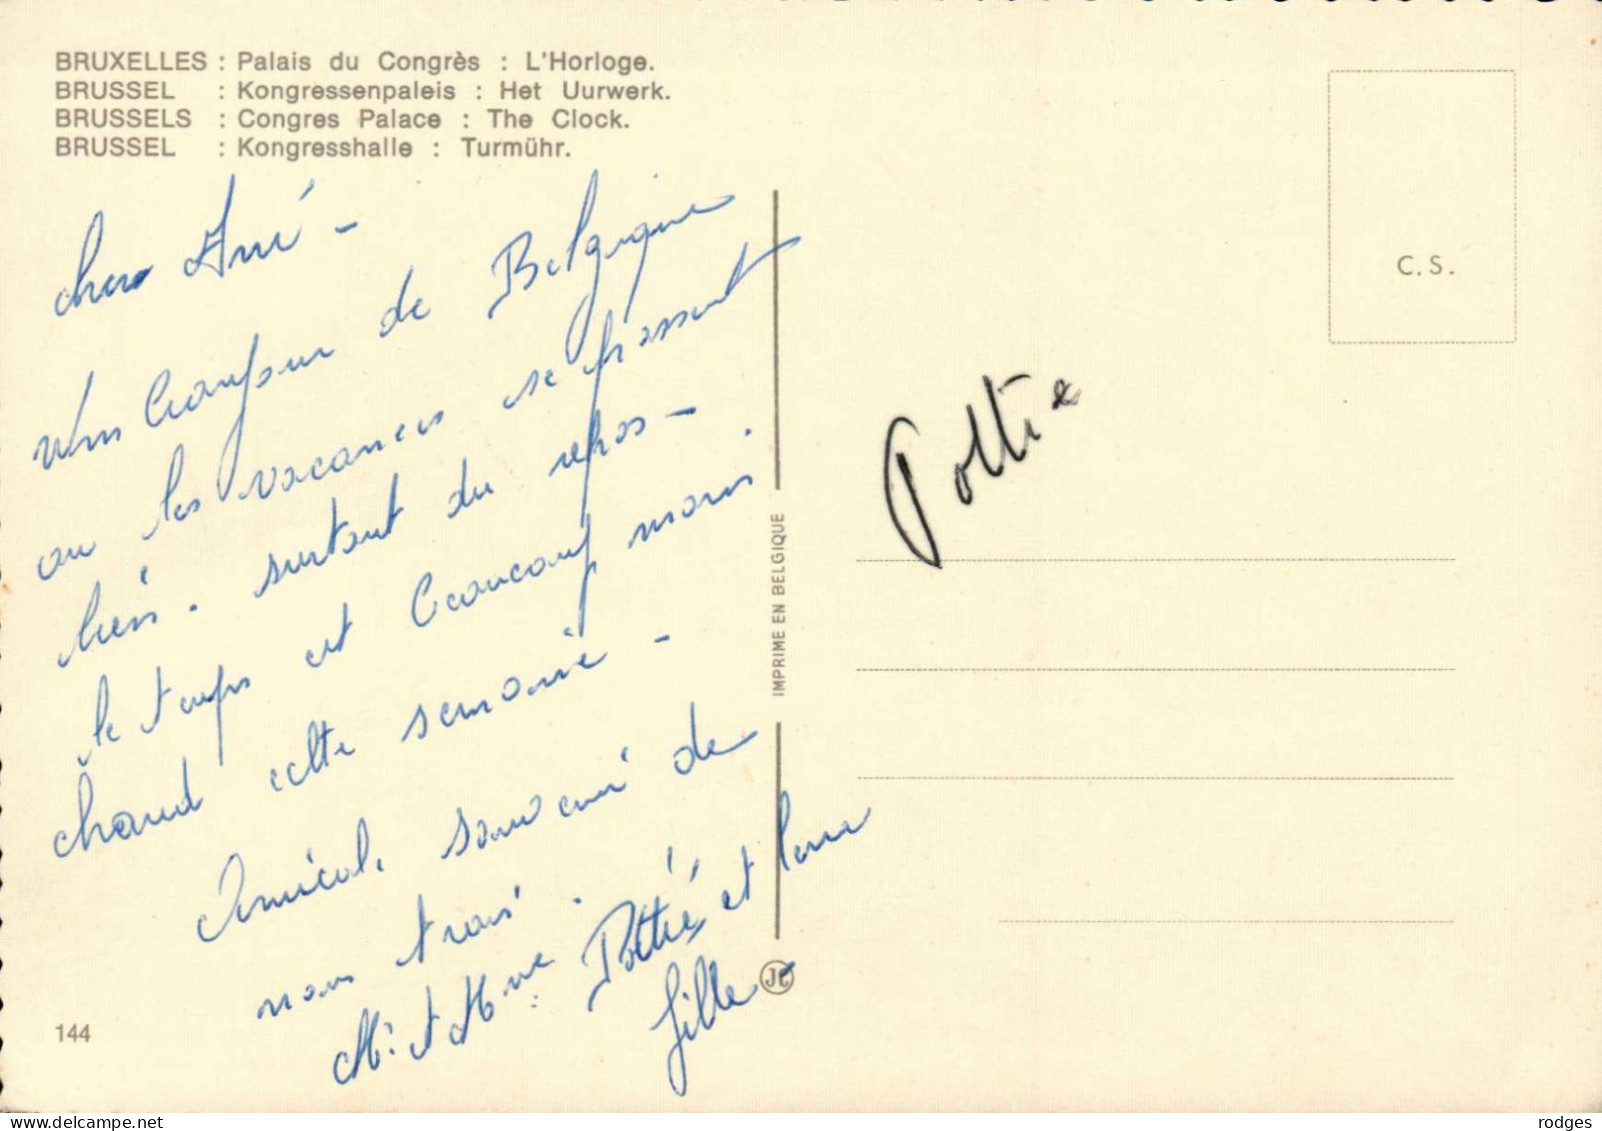 BRUXELLES : Palais du Congrès : L'Horloge.
BRUSSEL : Kongressenpaleis : Het Uurwerk.
BRUSSELS : Congres Palace : The Clock.
BRUSSEL : Kongresshalle : Turmühr.
C.S.
cher Ami -
Un bonjour de Belgique
ou les vacances se passent
bien. surtout du repos -
le temps est beaucoup moins
chaud cette semaine -
Amical souvenir de
nous trois.
Mr et Mme : Pottié et leur
fille
Pottie
IMPRIME EN BELGIQUE
144
rodges